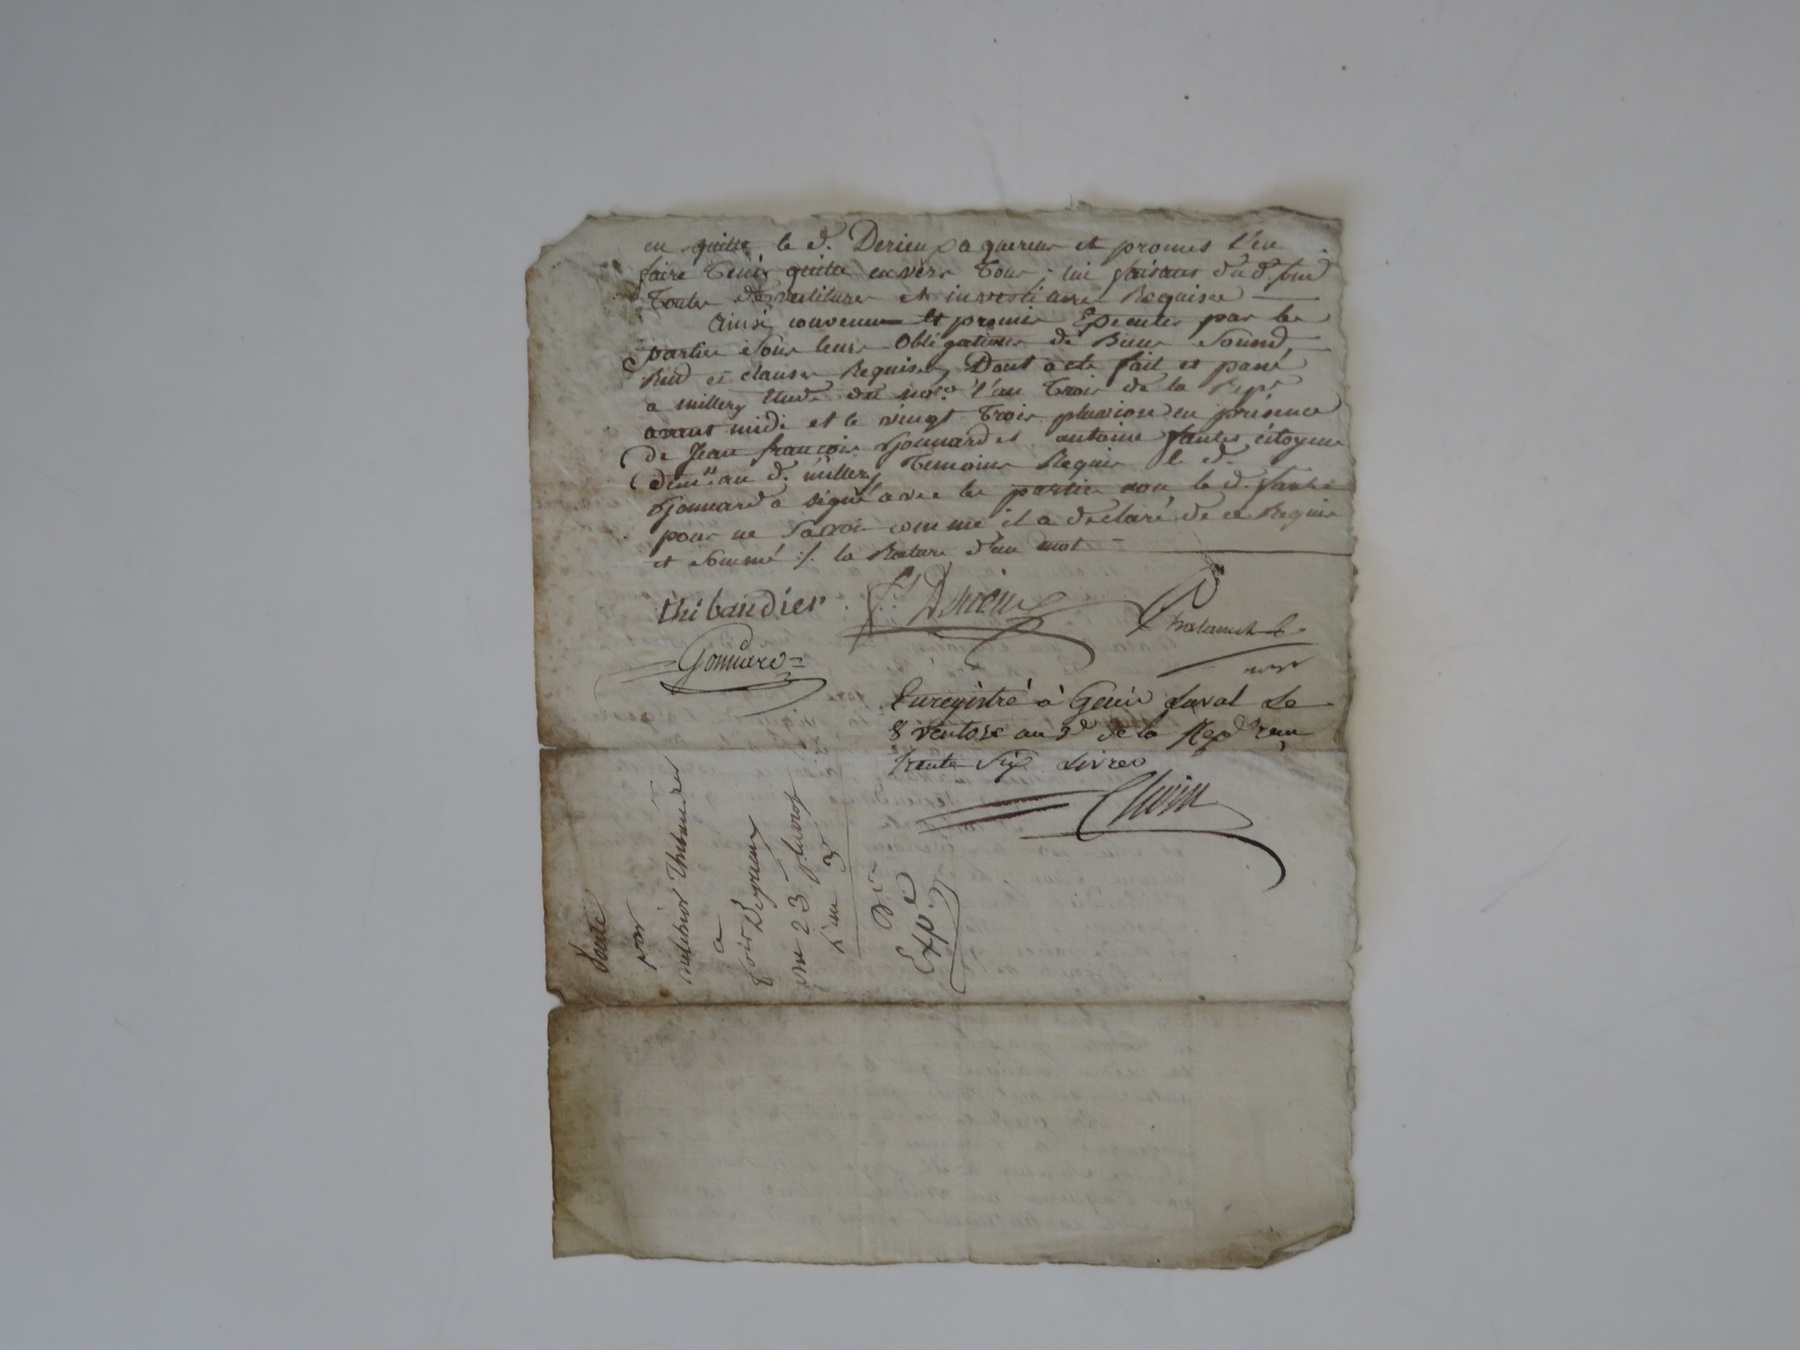 en quitte le d. Derieux a quereur et promis l'en
faire tenir quitte envers tous, lui faisant du d. fond
toutes devestitures et investitures Requises
Ainsi convenu et promis Executer par les
parties sous leurs obligations de Biens soumis,
Rend et clauses Requises, Dont acte fait et passé
a millery Etude du no.re l'an trois de la Rep.e
avant midi et le vingt trois pluviose en présence
de Jean françois Gonnard et antoine fantes citoyens
dem.ts au d. millery temoins Requis le d.
Gonnard a signé avec les parties non le d. fantes
pour ne savoir comme il a declaré de ce Requis
et sommé /. la Rature d'un mot
thibaudier
Derieux
Gonnard
Enregistré à Genis Laval Le
8 ventose an 3e de la Rep.e reçu
trente six Livres
Vente
par
melchior Thibaudier
a
Derieux
23 pluviose
l'an 3
Exp.é